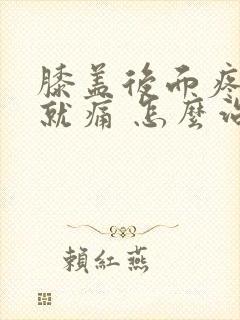 膝盖後面疼
就痛怎麼治
賴紅燕